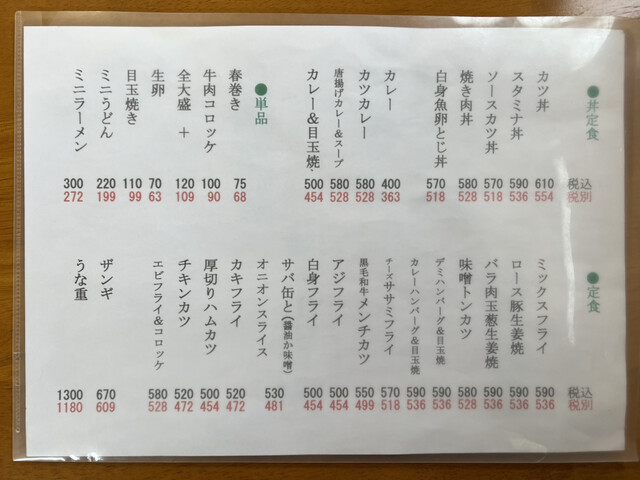 ●丼定食 税込 税別
カツ丼 610 554
スタミナ丼 590 536
ソースカツ丼 570 518
焼き肉丼 580 528
白身魚卵とじ丼 570 518
カレー 400 363
カツカレー 580 528
唐揚げカレー&スープ 580 528
カレー&目玉焼 500 454
●単品
春巻き 75 68
牛肉コロッケ 100 90
全大盛 + 120 109
生卵 70 63
目玉焼き 110 99
ミニうどん 220 199
ミニラーメン 300 272
●定食 税込 税別
ミックスフライ 590 536
ロース豚生姜焼 590 536
バラ肉玉葱生姜焼 590 536
味噌トンカツ 580 528
デミハンバーグ&目玉焼 590 536
カレーハンバーグ&目玉焼 590 536
チーズササミフライ 570 518
黒毛和牛メンチカツ 550 499
アジフライ 500 454
白身フライ 500 454
サバ缶と(醤油か味噌)
オニオンスライス 530 481
カキフライ 520 472
厚切りハムカツ 500 454
チキンカツ 520 472
エビフライ&コロッケ 580 528
ザンギ 670 609
うな重 1300 1180